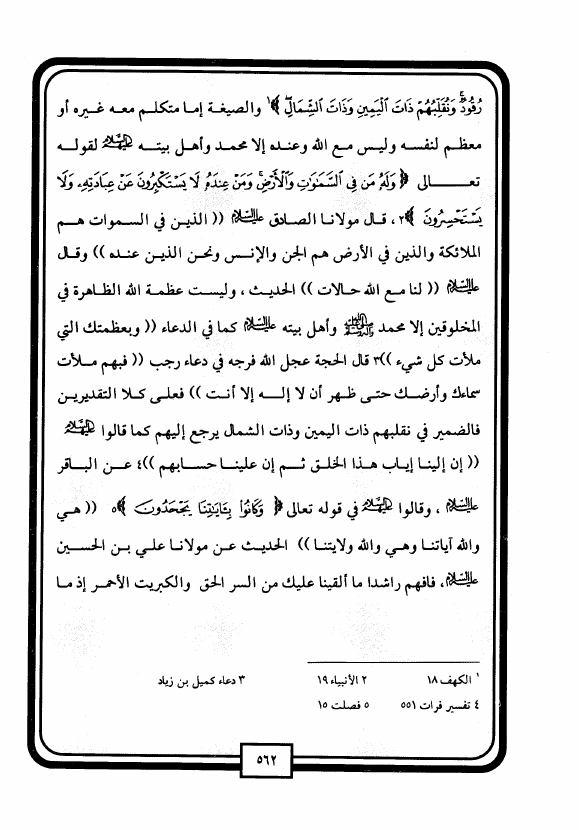 رُقُودٌ ۚ وَنُقَلِّبُهُمْ ذَاتَ الْيَمِينِ وَذَاتَ الشِّمَالِ ۖ ﴾ ¹ والصيغة إما متكلم معه غيره أو
معظم لنفسه وليس مع الله وعنده إلا محمد وأهل بيته عليهم السلام لقوله
تعالى ﴿ وَلَهُ مَن فِي السَّمَٰوَٰتِ وَالْأَرْضِ ۚ وَمَنْ عِندَهُ لَا يَسْتَكْبِرُونَ عَنْ عِبَادَتِهِ وَلَا
يَسْتَحْسِرُونَ ﴾٢ ، قال مولانا الصادق عليه السلام (( الذين في السموات هم
الملائكة والذين في الأرض هم الجن والإنس ونحن الذين عنده )) وقال
عليه السلام (( لنا مع الله حالات )) الحديث ، وليست عظمة الله الظاهرة في
المخلوقين إلا محمد صلى الله عليه وآله وسلم وأهل بيته عليهم السلام كما في الدعاء (( وبعظمتك التي
ملأت كل شيء ))٣ قال الحجة عجل الله فرجه في دعاء رجب (( فبهم ملأت
سماءك وأرضك حتى ظهر أن لا إله إلا أنت )) فعلى كلا التقديرين
فالضمير في نقلبهم ذات اليمين وذات الشمال يرجع إليهم كما قالوا عليهم السلام
(( إن إلينا إياب هذا الخلق ثم إن علينا حسابهم ))٤ عن الباقر
عليه السلام ، وقالوا عليهم السلام في قوله تعالى ﴿ وَكَانُوا بِـَٔايَٰتِنَا يَجْحَدُونَ ﴾٥ (( هي
والله آياتنا وهي والله ولايتنا )) الحديث عن مولانا علي بن الحسين
عليه السلام ، فافهم راشدا ما ألقينا عليك من السر الحق والكبريت الأحمر إذ ما
¹ الكهف ١٨ ٢ الأنبياء ١٩ ٣ دعاء كميل بن زياد
٤ تفسير فرات ٥٥١ ٥ فصلت ١٥
٥٦٢